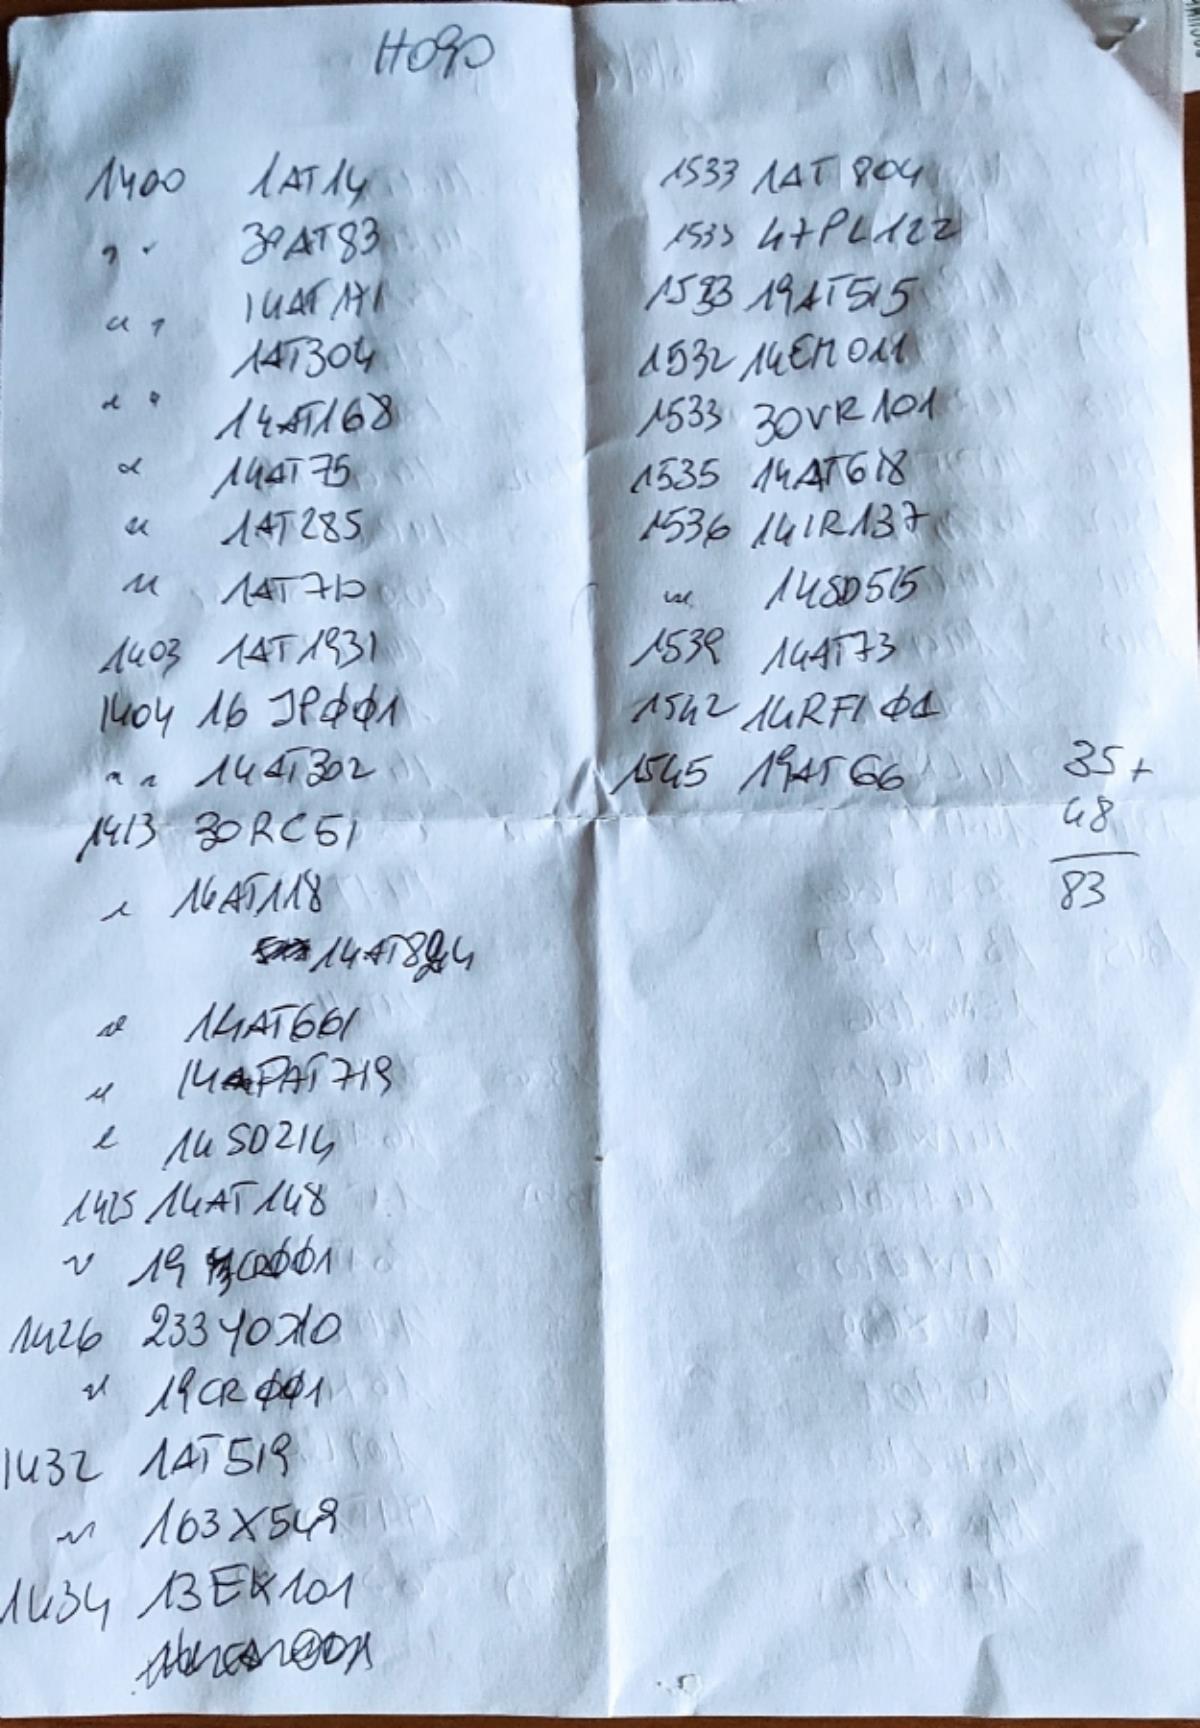 H090
1400 1AT14
" " 30AT83
" " 14AT171
1AT304
" " 14AT168
" 14AT75
" 1AT285
" 1AT710
1403 1AT1931
1404 16 JP001
" " 14AT302
1413 30RC51
" 14AT118
14AT894
" 14AT661
" 14PAT719
" 14SD214
1425 14AT148
" 19CR001
1426 233YO210
" 19CR001
1432 1AT519
" 163X549
1434 13EK101
1533 1AT804
1533 47PL122
1533 19AT515
1532 14EM011
1533 30VR101
1535 14AT618
1536 14IR137
" 14SD515
1539 14AT73
1542 14RF101
1545 19AT66
35+
48
83